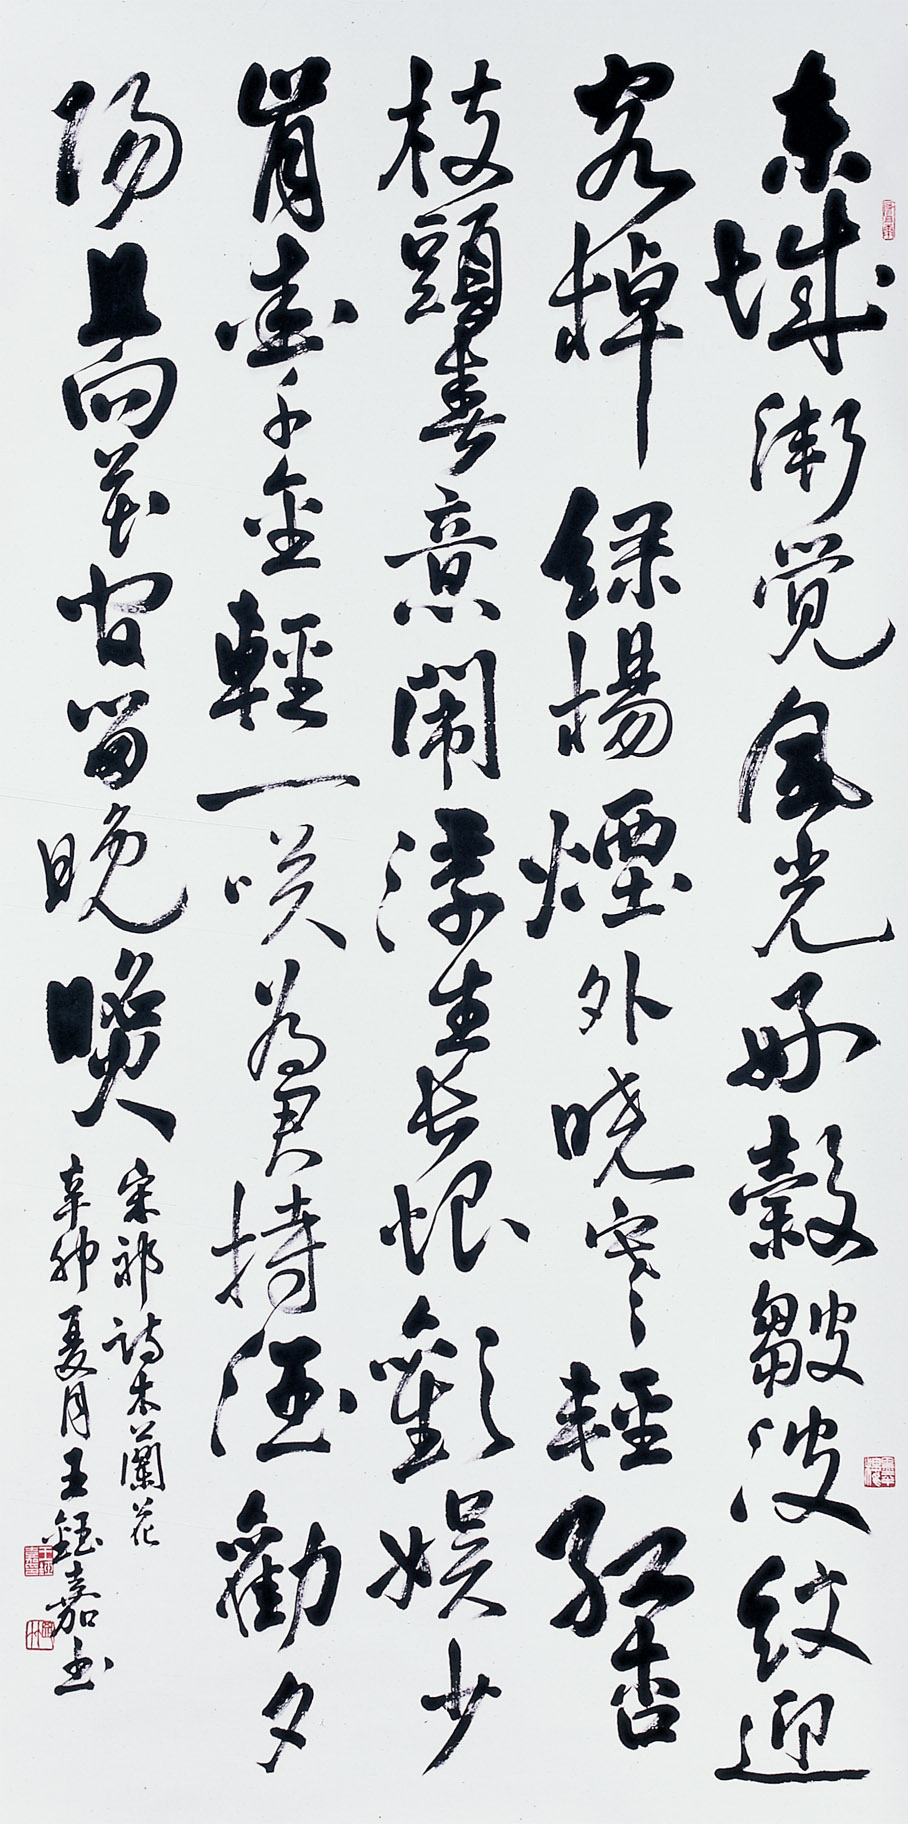 東城漸覺風光好縠皺波紋迎
客棹綠楊煙外曉寒輕紅杏
枝頭春意鬧浮生長恨歡娛少
肯愛千金輕一咲為君持酒勸夕
陽且向花間留晚照
宋祁詩木蘭花
辛卯夏月王鈺嘉書